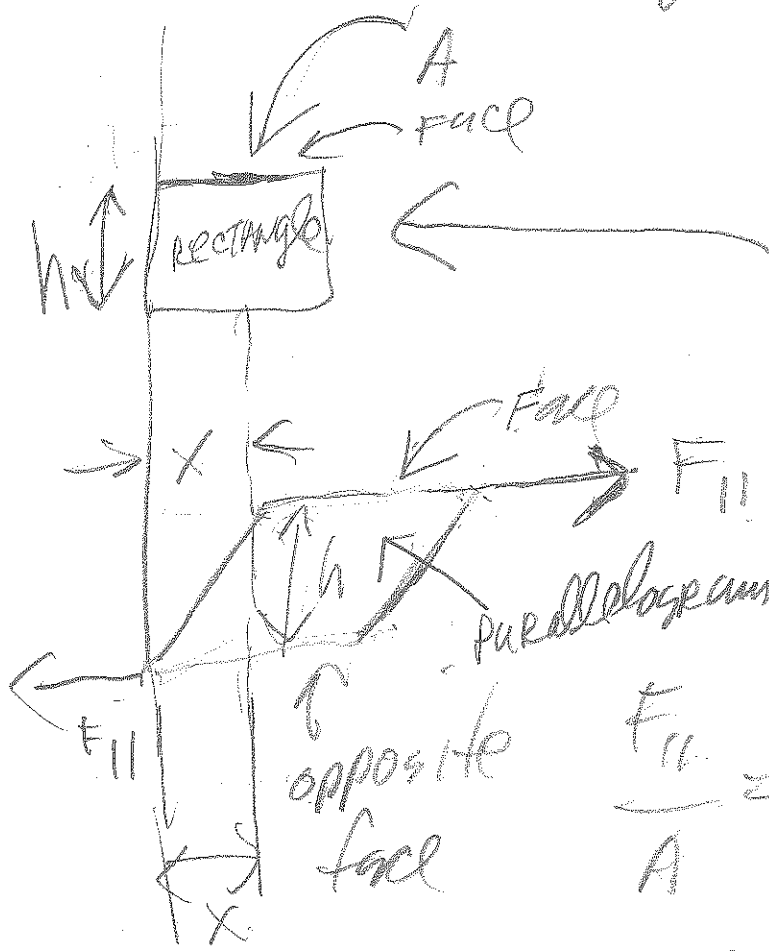 A
Face
h
RECTANGle
X
Face
F||
h
Parallelogram
F||
opposite
face
F||
A
=
X